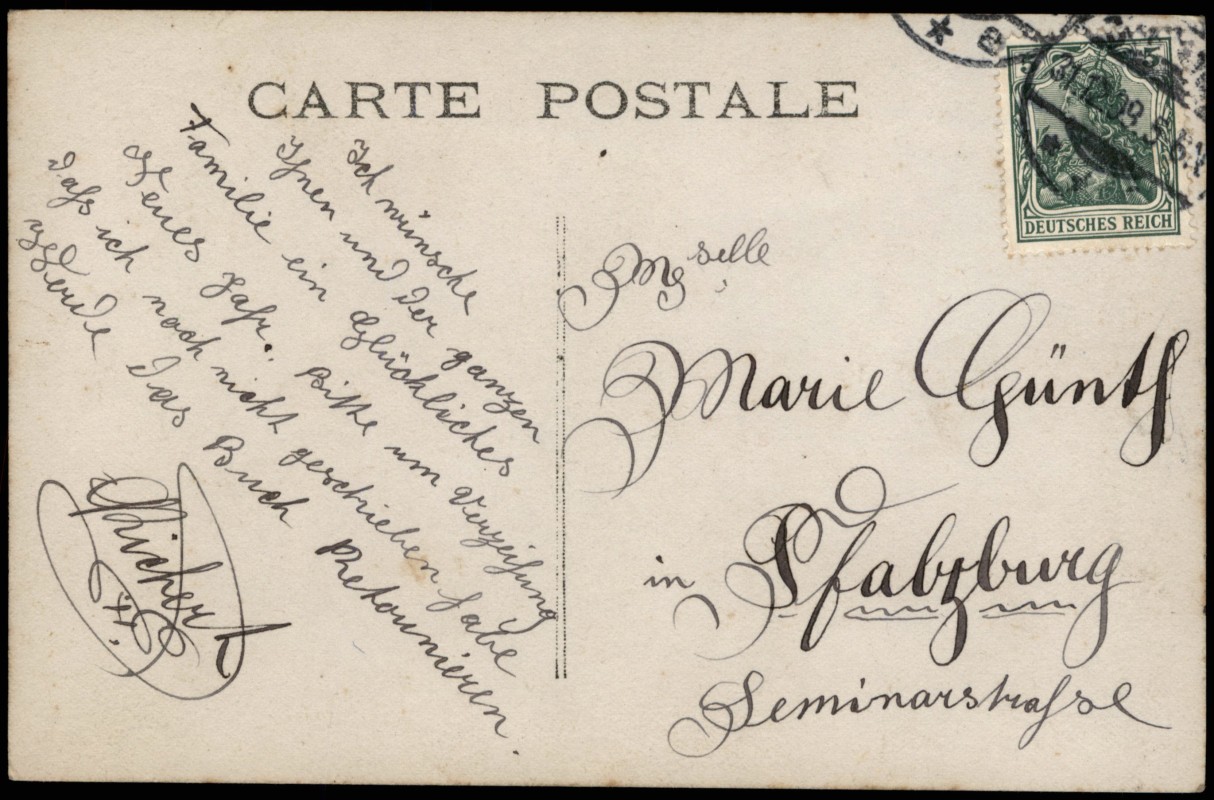 CARTE POSTALE
Ich wünsche
Ihnen und der ganzen
Familie ein Glückliches
Neues Jahr. Bitte um Verzeihung
dass ich noch nicht geschrieben habe
Werde das Buch Retounieren.
5 5
31.12.09. 5-6N
* a
DEUTSCHES REICH
Mselle
Marie Günth
in Pfalzburg
Seminarstrasse